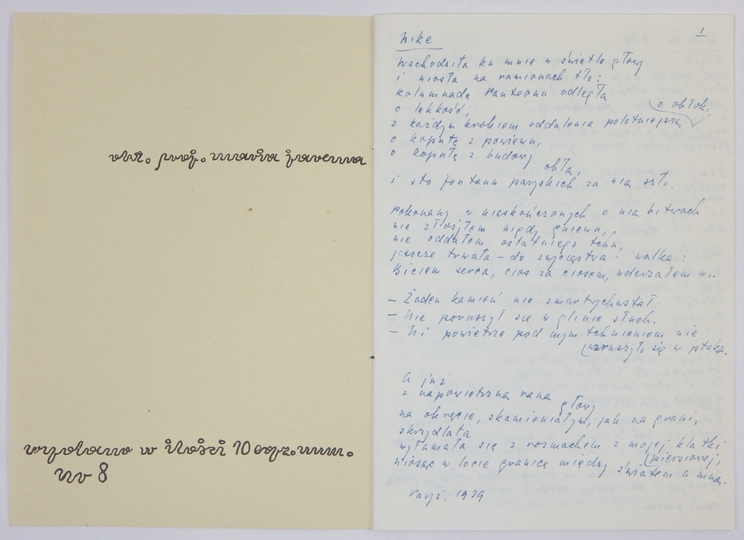 okł. proj. maria jarema
wydano w ilości 10 egz. num.
nr 8
1
Nike
Wschodziła ku mnie w świetle głowy
i niosła na ramionach tło:
kolumnadę Panteonu odległą
o lekkość,
o obłok,
z każdym krokiem oddalenia
o kopułę z powiewu,
o kopułę z budowy
obłą,
i sto fontann paryskich za nią szło.
Pokonany w nieskończonych o nią bitwach
nie złożyłem nigdy gniewu,
nie oddałem ostatniego tchu,
jeszcze trwała – do zwycięstwa – walka:
Biciem serca, cios za ciosem, uderzałem w..
– Żaden kamień nie zmartwychwstał.
– Nie poruszył się w glinie słuch.
– Ni powietrze pod mym tchnieniem nie
wzruszyło się w ptaka.
Aż już
z napowietrzną raną głowy
na okręcie, skamieniałym, jak na grani,
skrzydlata
wyłamała się z rozmachem z mojej klatki
piersiowej,
niosąc w locie granicę między światem a mną.
Paryż, 1939